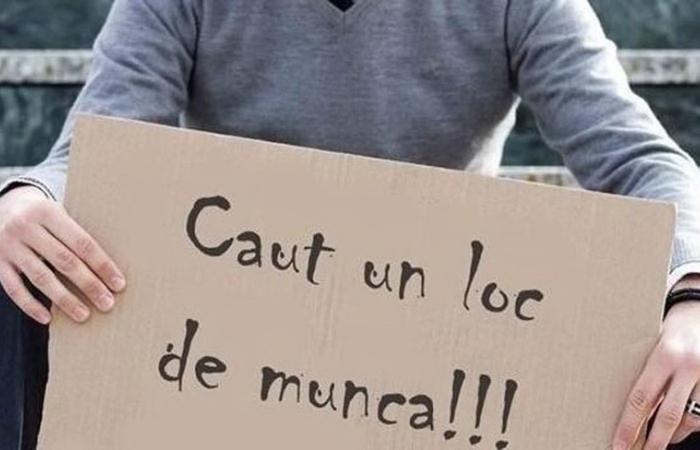 Caut un loc
de munca!!!